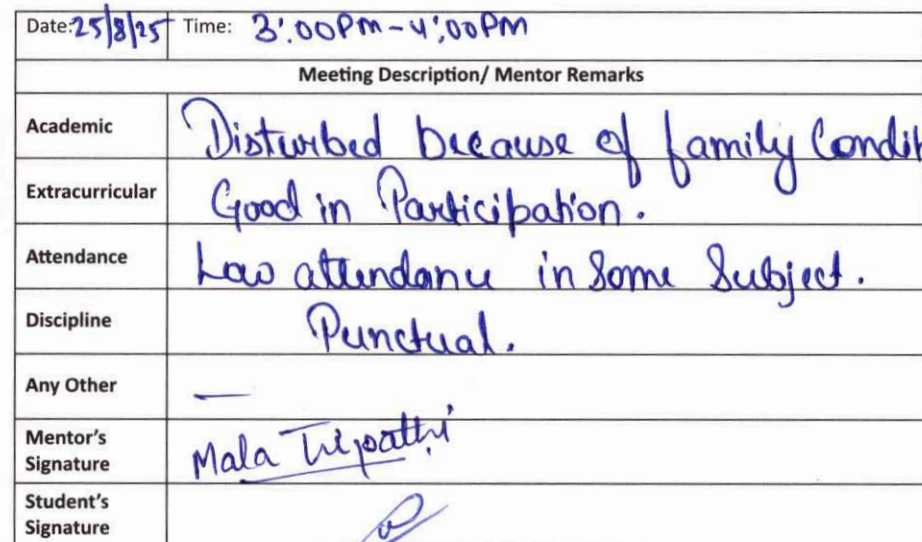 Date: 25/8/25 Time: 3:00PM-4:00PM
Meeting Description/ Mentor Remarks
Academic Disturbed because of family Condit
Extracurricular Good in Participation.
Attendance Low attendance in Some Subject.
Discipline Punctual.
Any Other —
Mentor's
Signature Mala Tripathi
Student's
Signature